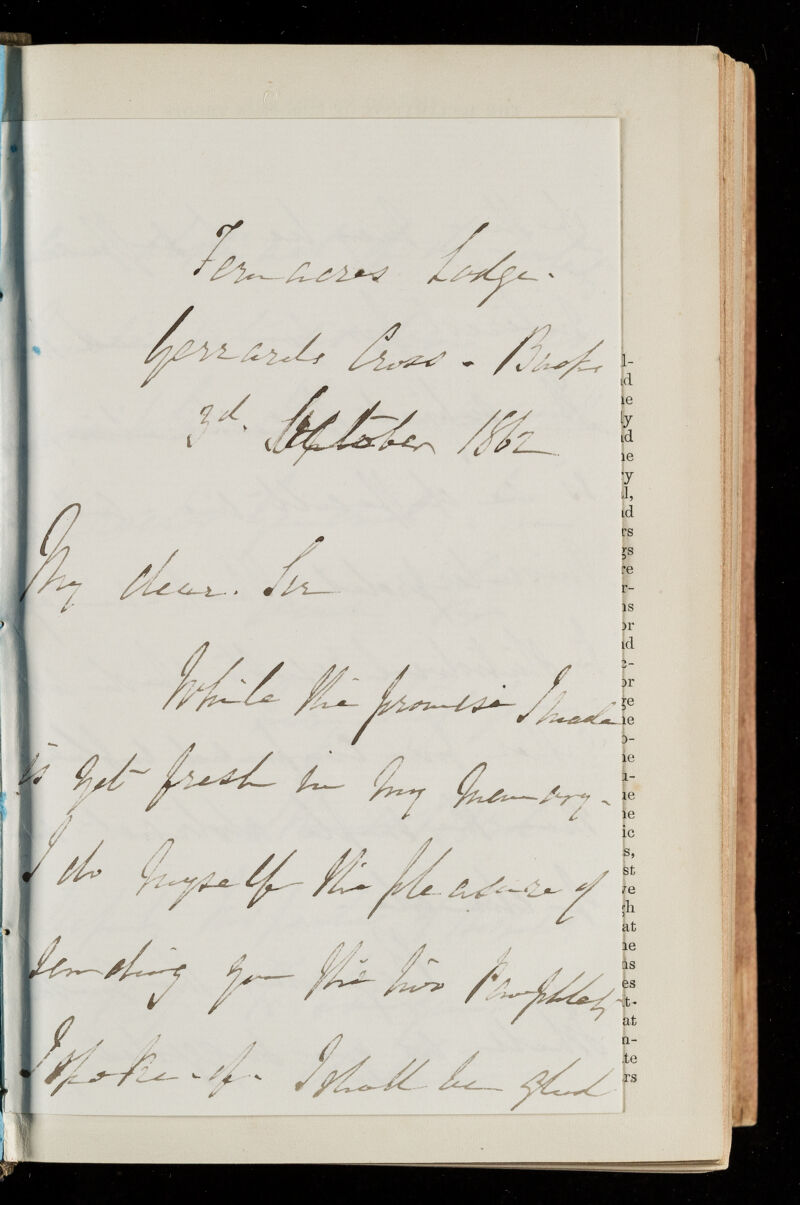 Fernacres Lodge.
Gerrards Cross - Bucks
3d. October 1862
My dear. Sir
While the promise I made
is yet fresh in my memory-
I do myself the pleasure of
sending you the two Pamphlets
I spoke-of- I shall be glad
l-
nd
ne
ly
nd
ne
ry
l,
nd
rs
gs
re
r-
ns
or
nd
c-
or
ge
ne
o-
ne
u-
ne
ne
ic
s,
st
ve
gh
at
ne
ns
es
t-
at
n-
te
rs